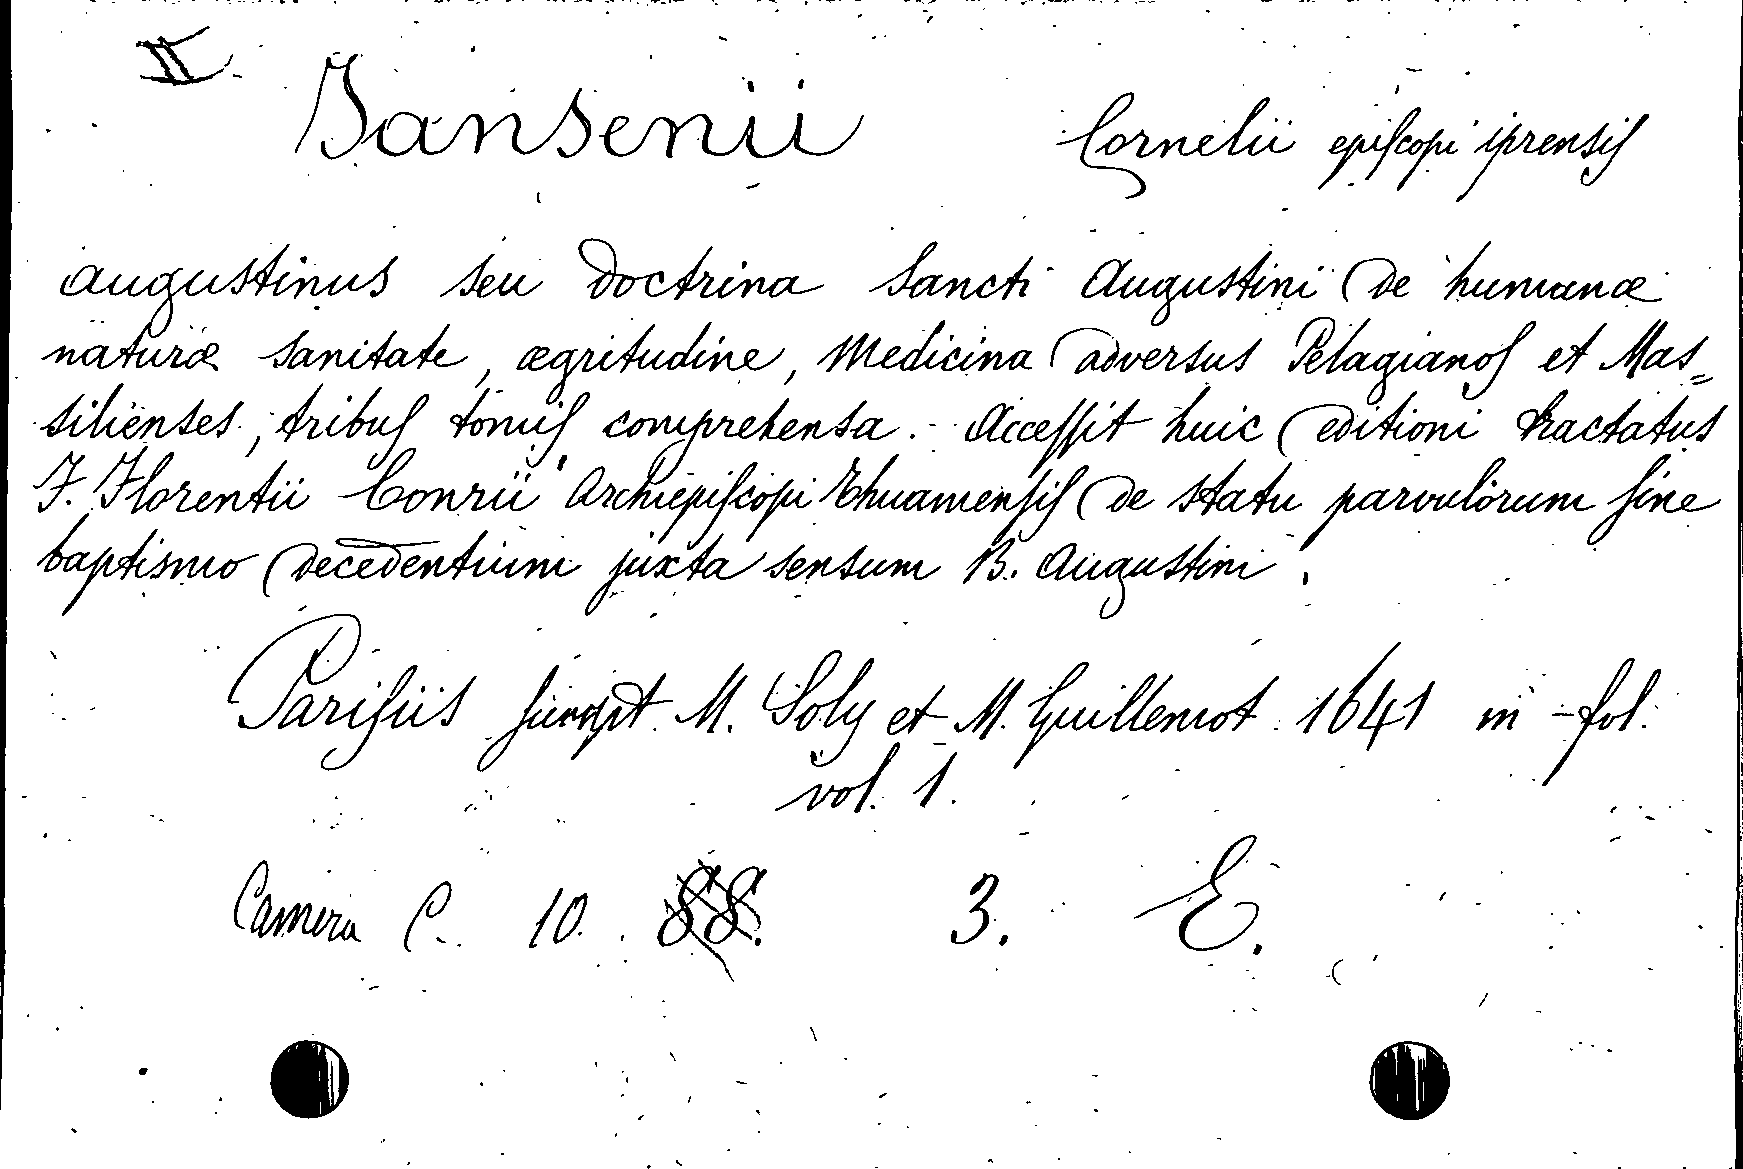 II.
Jansenii Cornelii episcopi iprensis
Augustinus seu doctrina Sancti Augustini de humanæ
naturæ sanitate, ægritudine, medicina adversus Pelagianos et Mas=
silienses, tribus tomis comprehensa. Accessit huic editioni tractatus
F. Florentii Conrii Archiepiscopi Thuamensis de statu parvulorum sine
baptismo decedentium juxta sensum B. Augustini.
Parisiis sumpt. M. Soly et M. Guillemot 1641 in-fol.
vol. 1.
Camera C. 10. 3. E.